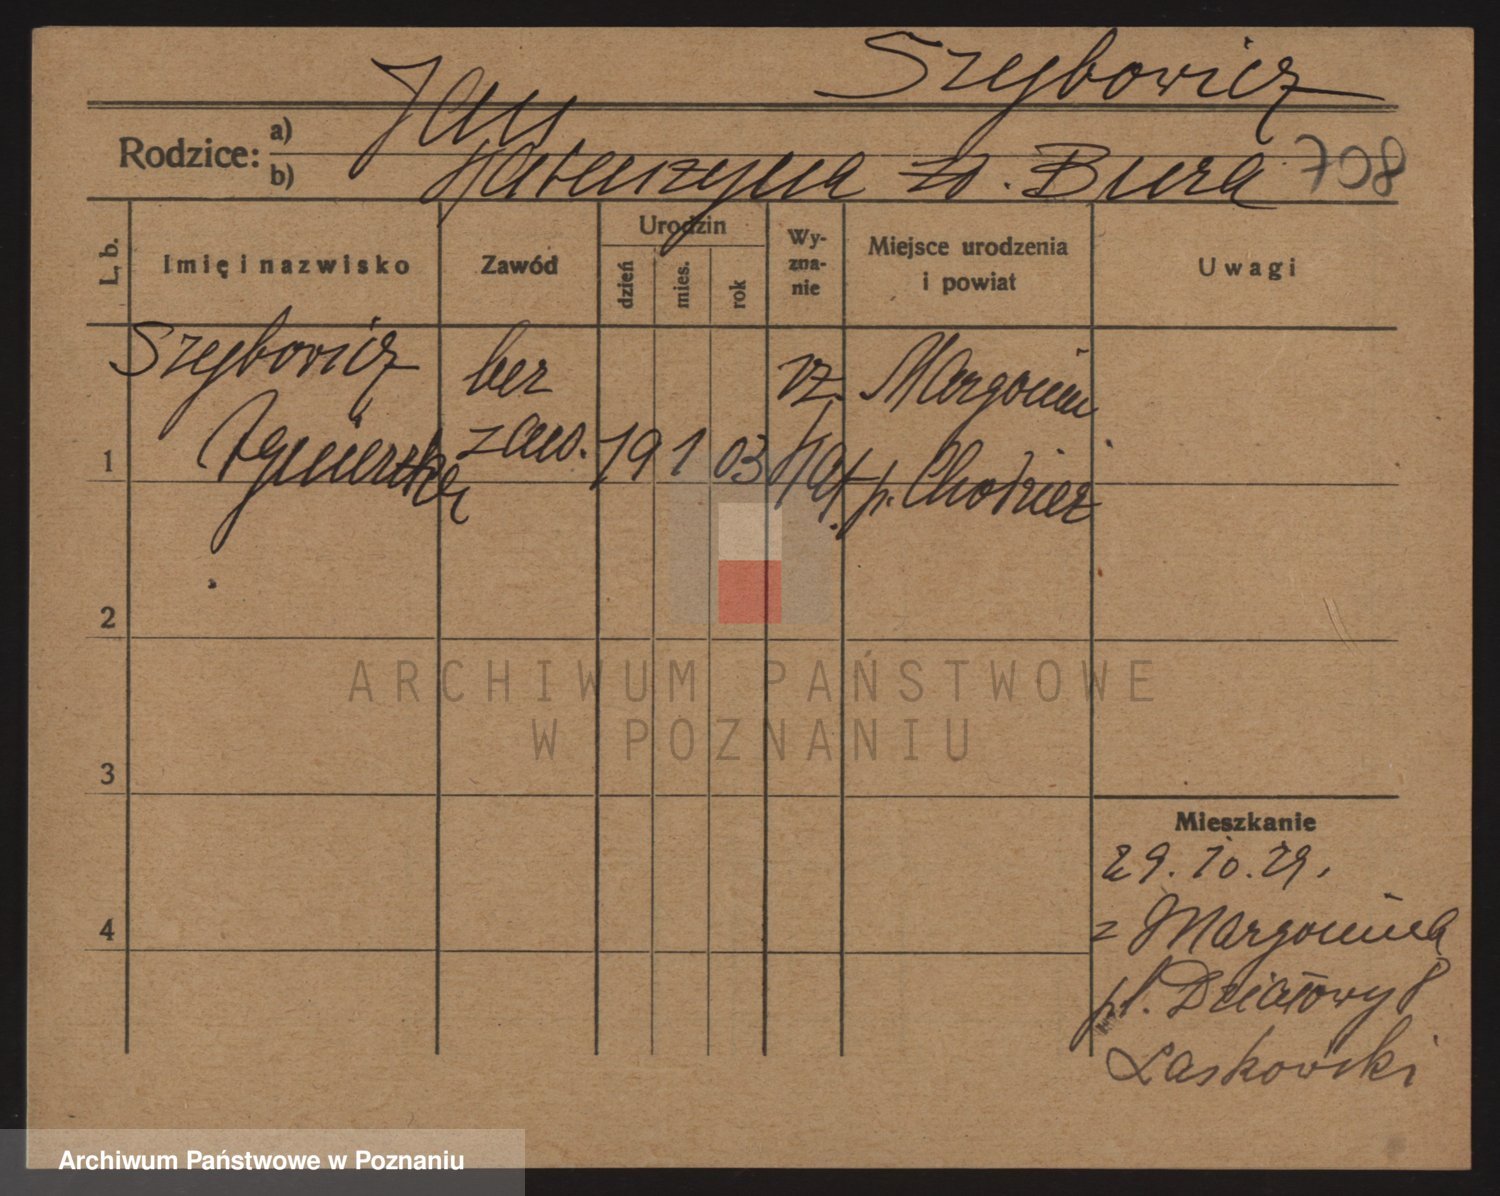 Szejbowicz
Rodzice: a) Jan
b) Katarzyna zd. Bura 708
L. b. Imię i nazwisko Zawód Urodzin dzień mies. rok Wyznanie Miejsce urodzenia i powiat Uwagi
Szejbowicz bez rz. Margonin
1 zaw. 19 1 03 Kat. p. Chodzież
2
3
Mieszkanie
29.10.29.
4 z Margonina
pl. Działowy 8
Laskowski
ARCHIWUM PAŃSTWOWE
W POZNANIU
Archiwum Państwowe w Poznaniu